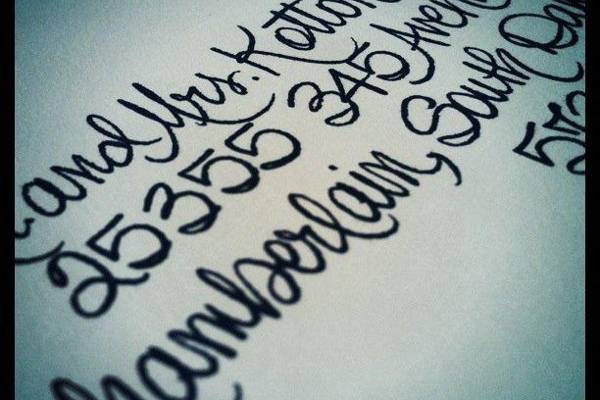 and Mrs. Kotton
25355 345 Aven
hamberlain, South Da
573